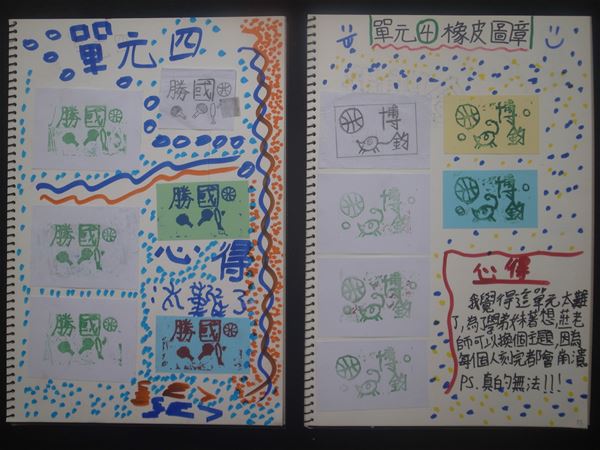 單元四
勝國
勝國
勝國
勝國
心得
勝國
太難了
勝國
單元4橡皮圖章
博鈞
博鈞
博鈞
博鈞
博鈞
博鈞
心得
我覺得這單元太難
了,為了學弟妹著想,莊老
師可以換個主題,因為
每個人刻完都會崩潰
PS.真的無法!!!